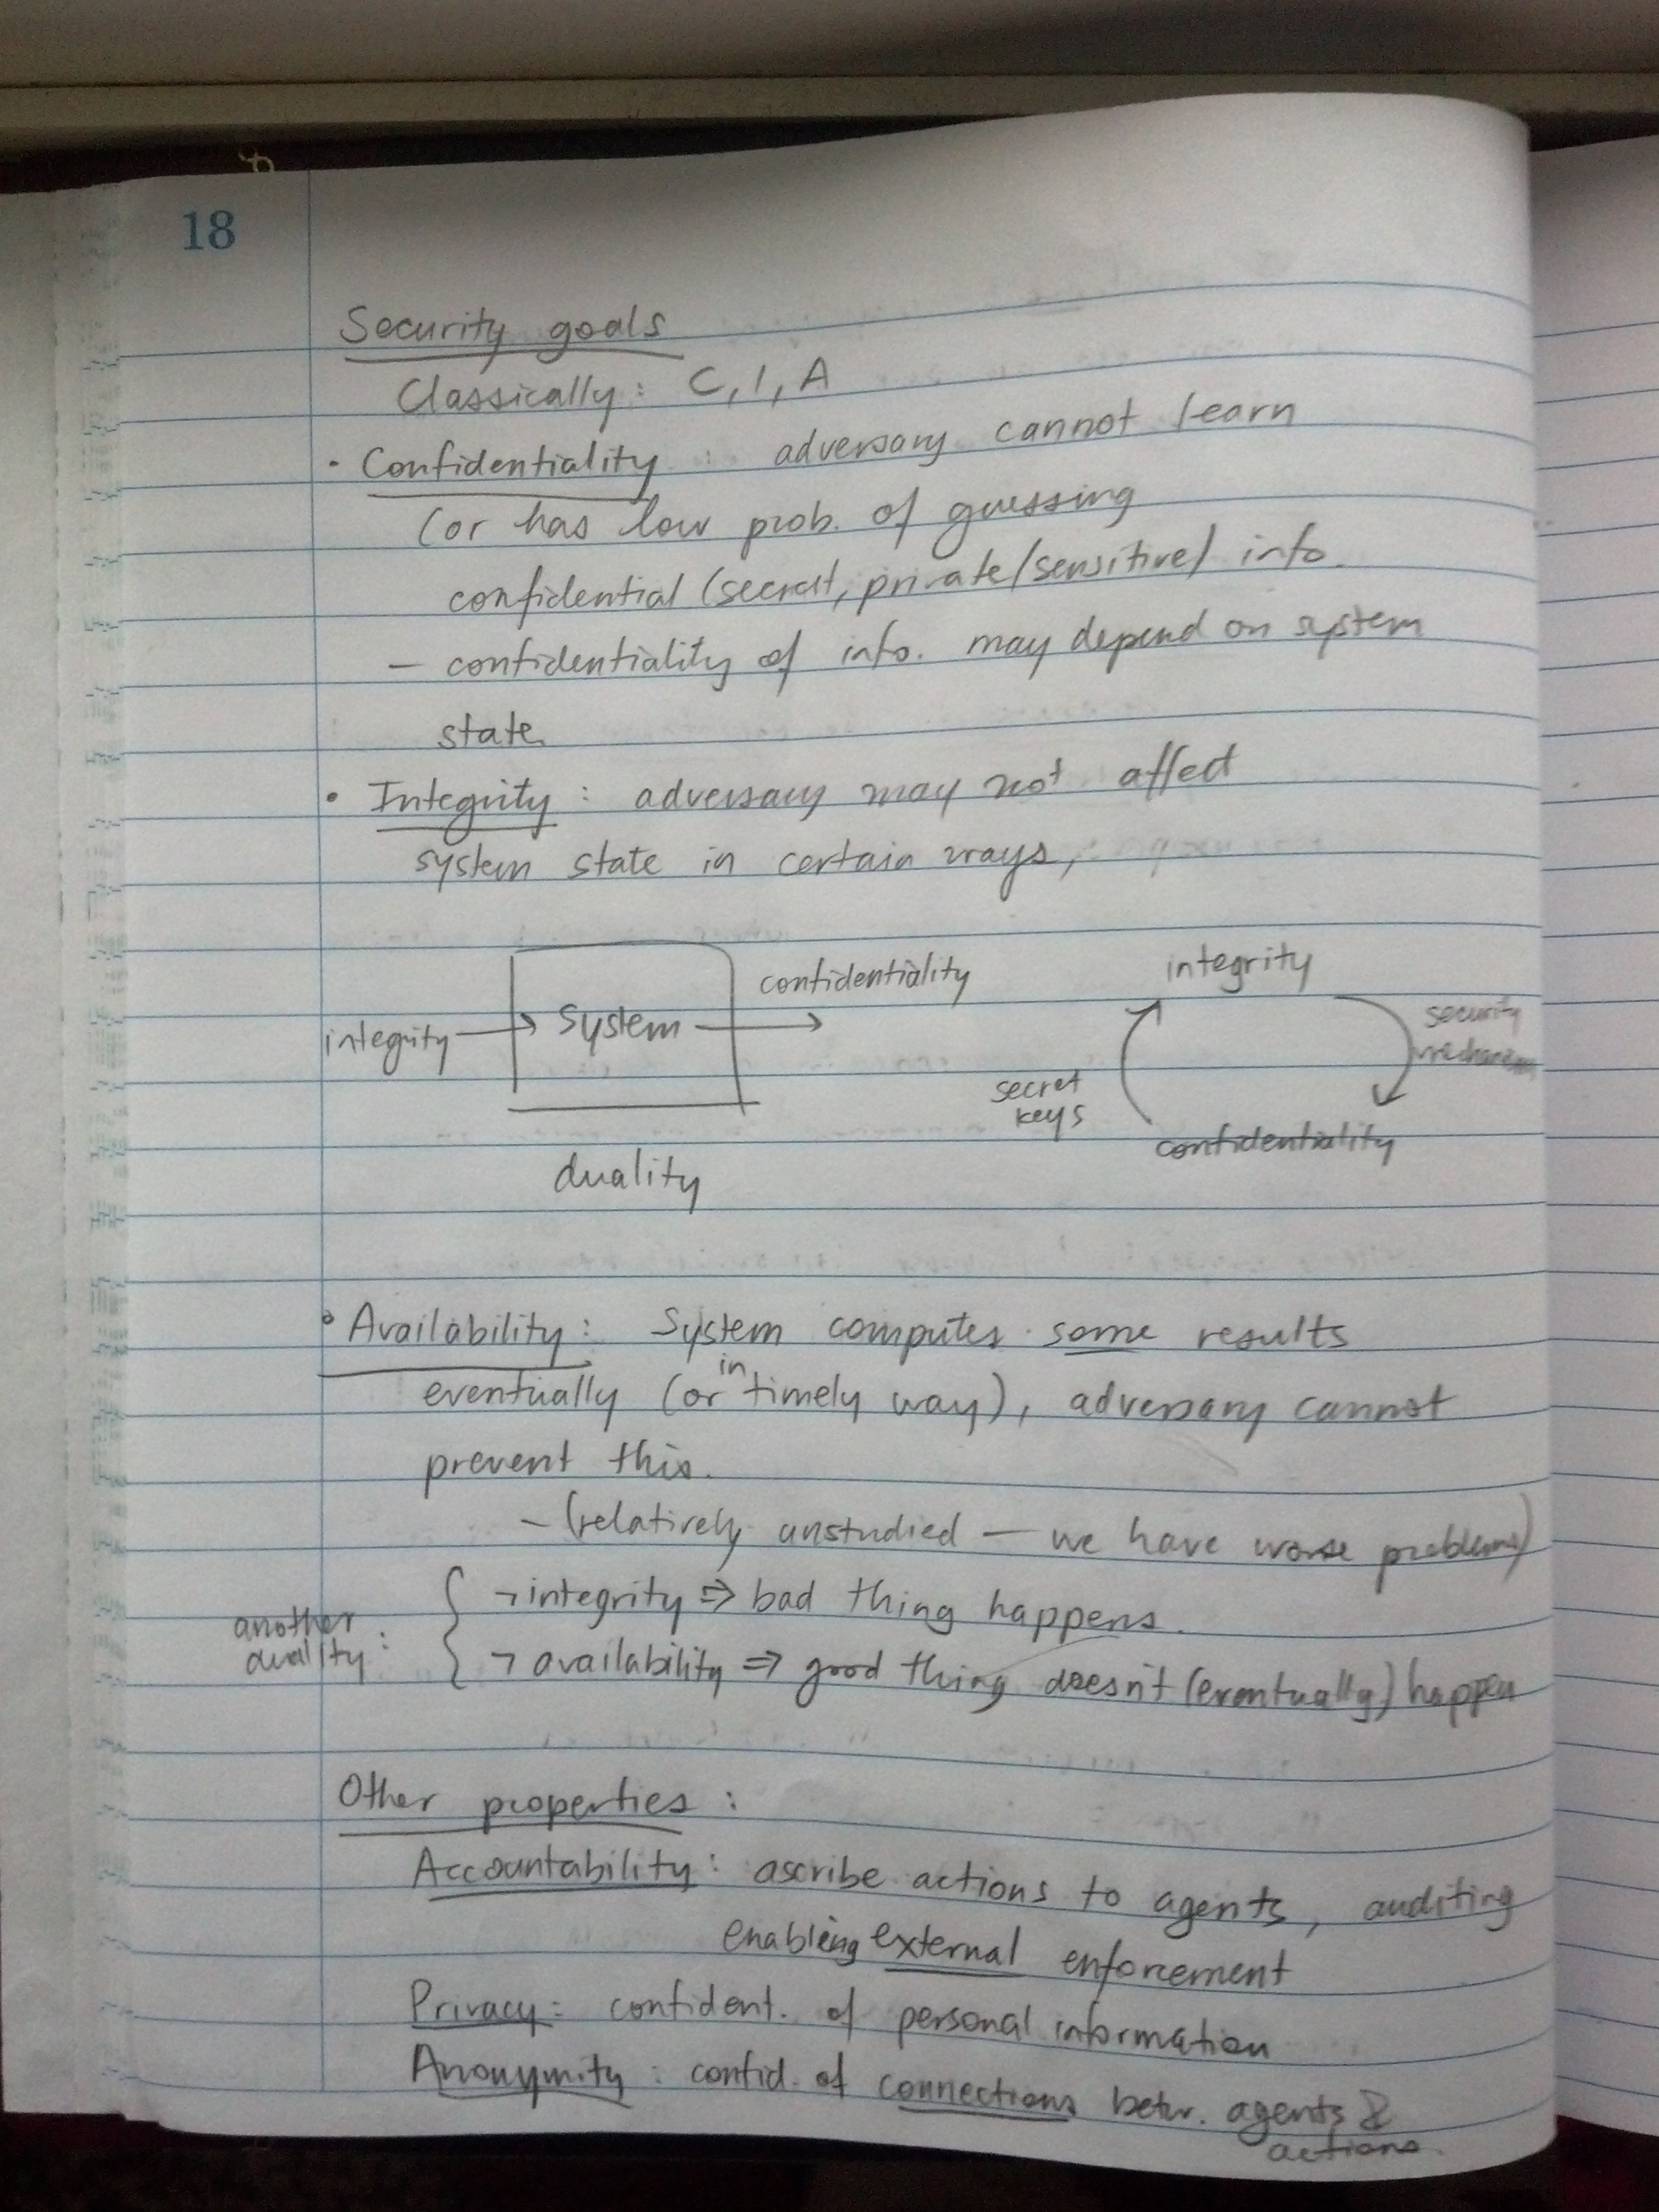 18
Security goals
Classically: C, I, A
• Confidentiality : adversary cannot learn
(or has low prob. of guessing
confidential (secret, private/sensitive) info.
— confidentiality of info. may depend on system
state.
• Integrity : adversary may not affect
system state in certain ways,
integrity → System → confidentiality
duality
integrity
security
mechanism
secret
keys
confidentiality
• Availability : System computes some results
eventually (or in timely way), adversary cannot
prevent this.
— (relatively unstudied — we have worse problems)
another
duality :
¬ integrity ⇒ bad thing happens.
¬ availability ⇒ good thing doesn't (eventually) happen
Other properties :
Accountability : ascribe actions to agents, auditing
enabling external enforcement
Privacy : confident. of personal information
Anonymity : confid. of connections betw. agents &
actions.